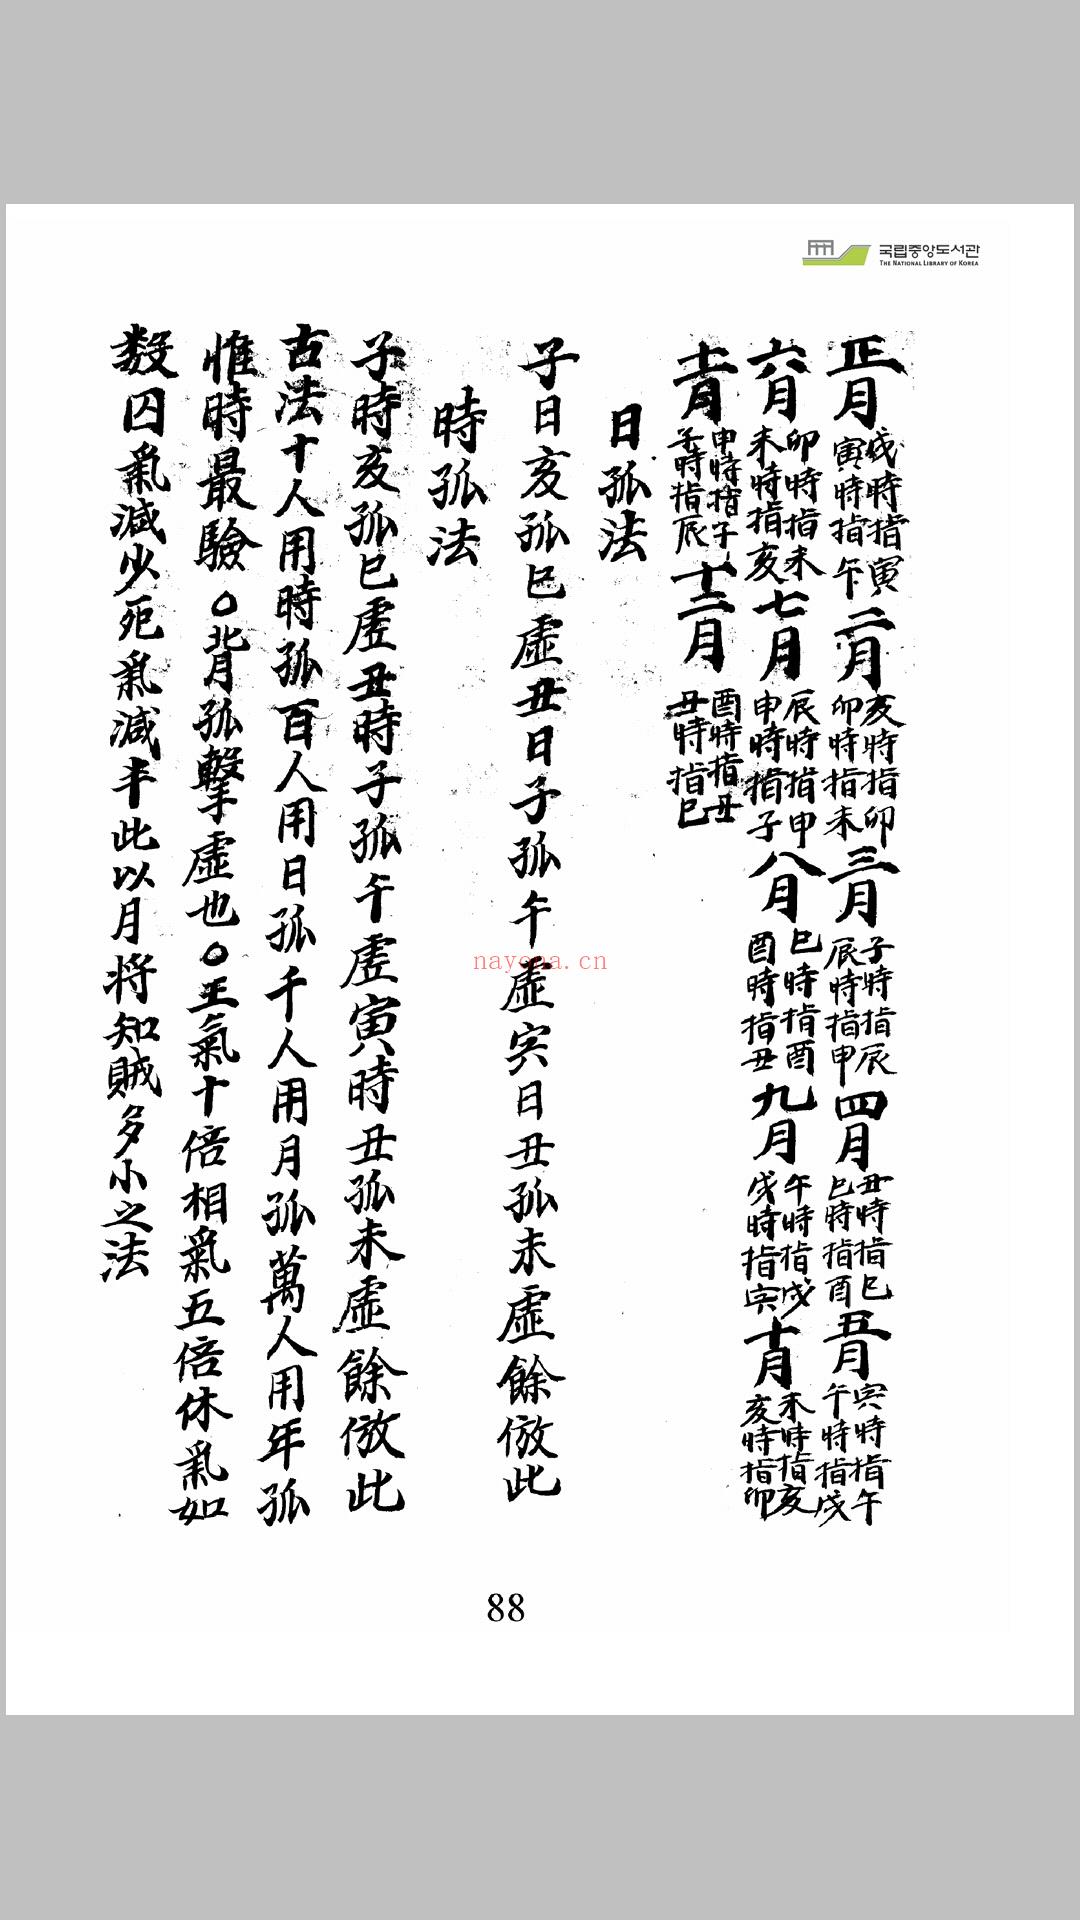 국립중앙도서관
THE NATIONAL LIBRARY OF KOREA
正月戌時指寅寅時指午二月亥時指卯卯時指未三月子時指辰辰時指申四月丑時指巳巳時指酉五月寅時指午午時指戌
六月卯時指未未時指亥七月辰時指申申時指子八月巳時指酉酉時指丑九月午時指戌戌時指寅十月未時指亥亥時指卯
十一月申時指子子時指辰十二月酉時指丑丑時指巳
日孤法
子日亥孤巳虛丑日子孤午虛寅日丑孤未虛餘倣此
時孤法
子時亥孤巳虛丑時子孤午虛寅時丑孤未虛餘倣此
古法十人用時孤百人用日孤千人用月孤萬人用年孤
惟時最驗○背孤擊虛也○王氣十倍相氣五倍休氣如
数囚氣減少死氣減半此以月将知賊多小之法
nayona.cn
88